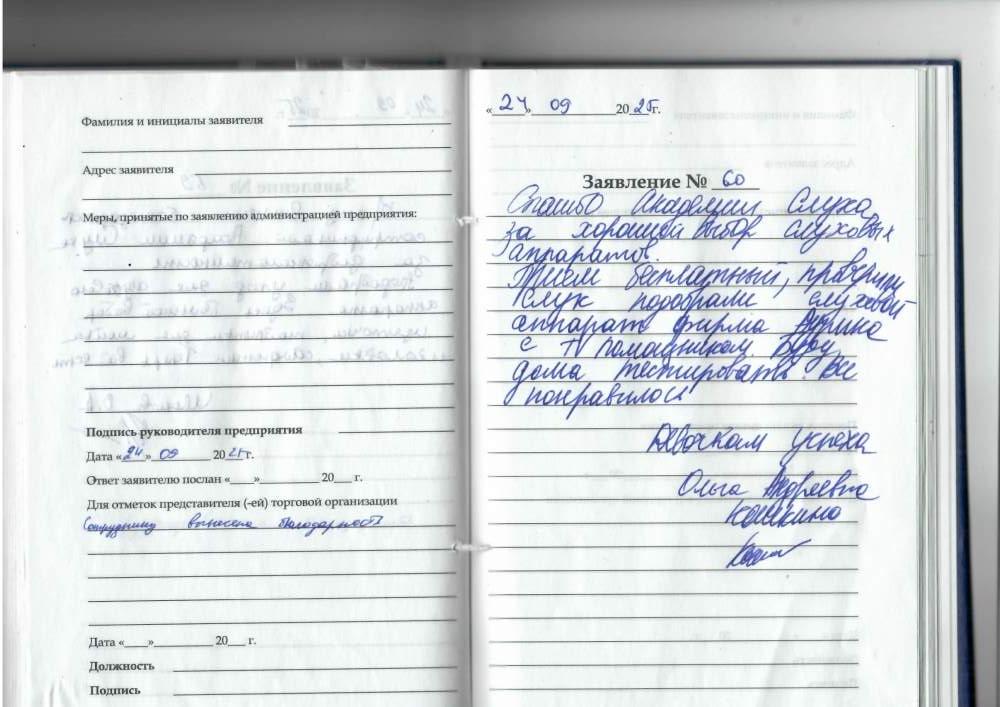 Фамилия и инициалы заявителя
Адрес заявителя
Меры, принятые по заявлению администрацией предприятия:
Подпись руководителя предприятия
Дата «24» 09 20 25 г.
Ответ заявителю послан «___»__________ 20___ г.
Для отметок представителя (-ей) торговой организации
Сотруднику вынесена благодарность
Дата «___»__________ 20___ г.
Должность
Подпись
«24» 09 20 25 г.
Заявление № 60
Спасибо Академии Слуха
за хороший выбор слуховых
аппаратов.
Прием бесплатный, проверили
слух подобрали слуховой
аппарат фирма
с TV помощником. Буду
дома тестировать. Все
понравилось
Девочкам успеха
Ольга Андреевна
Кошкина